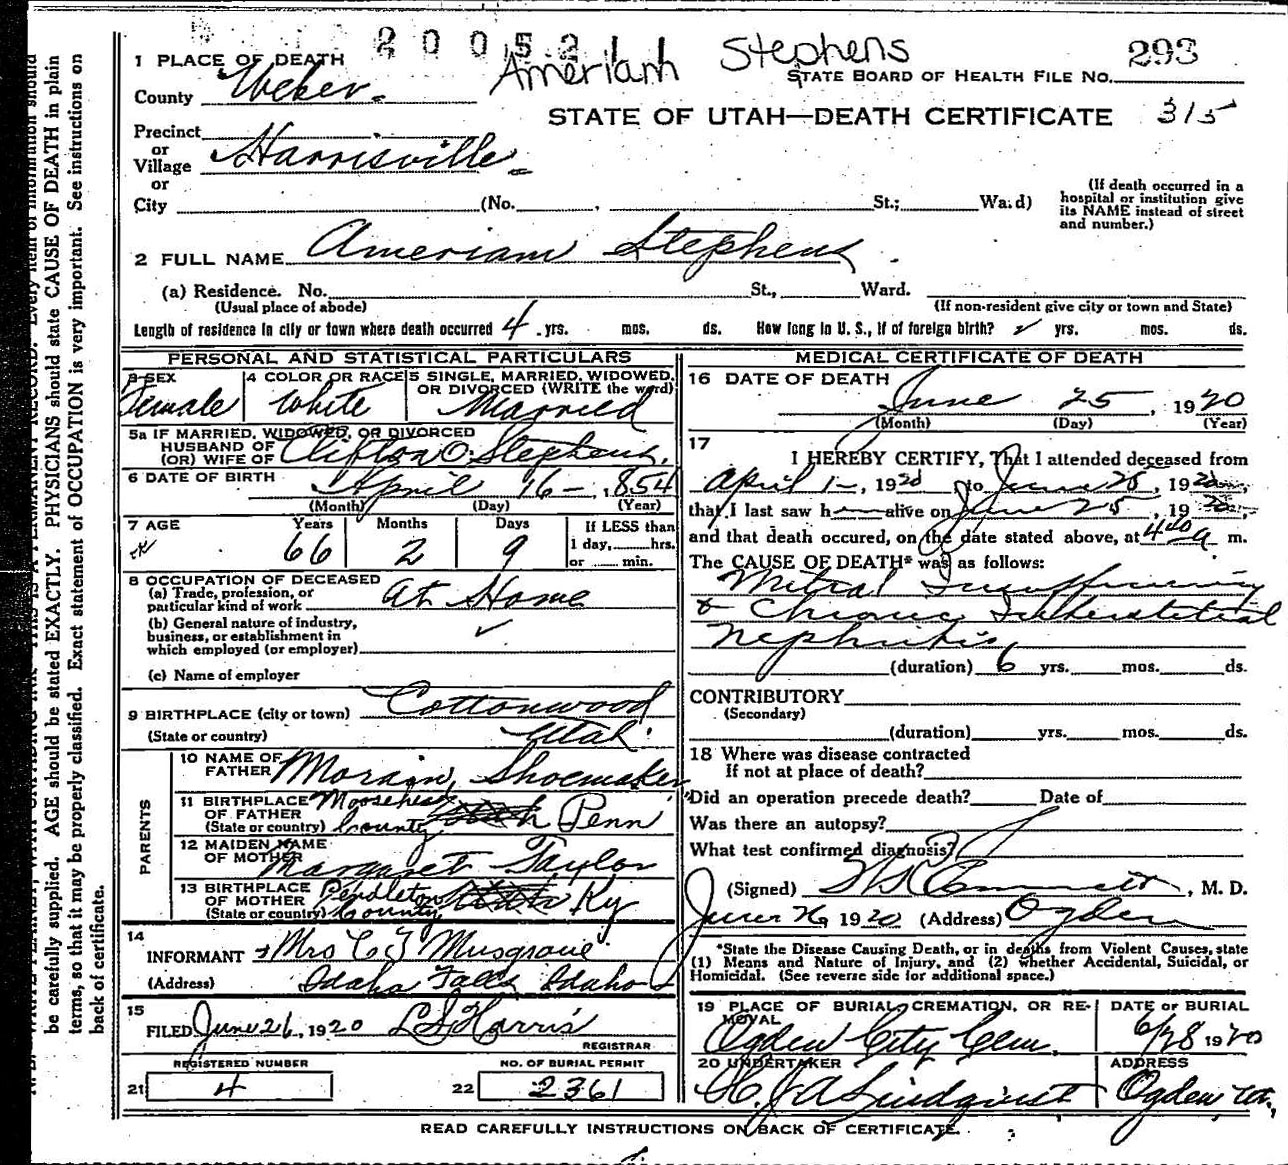 20052
Ameriam Stephens
293
1 PLACE OF DEATH
STATE BOARD OF HEALTH FILE NO.
County Weber
STATE OF UTAH—DEATH CERTIFICATE 315
Precinct
or
Village Harrisville
or
City (No. , St.; Ward)
(If death occurred in a
hospital or institution give
its NAME instead of street
and number.)
2 FULL NAME Ameriam Stephens
(a) Residence. No. St., Ward.
(Usual place of abode) (If non-resident give city or town and State)
Length of residence in city or town where death occurred 4 yrs. mos. ds. How long in U. S., if of foreign birth? yrs. mos. ds.
PERSONAL AND STATISTICAL PARTICULARS
3 SEX
Female
4 COLOR OR RACE
White
5 SINGLE, MARRIED, WIDOWED,
OR DIVORCED (WRITE the word)
Married
5a IF MARRIED, WIDOWED, OR DIVORCED
HUSBAND OF
(OR) WIFE OF Clifton O. Stephens.
6 DATE OF BIRTH
April 16 – , 1854
(Month) (Day) (Year)
7 AGE
Years Months Days
66 2 9
If LESS than
1 day, hrs.
or min.
8 OCCUPATION OF DECEASED
(a) Trade, profession, or
particular kind of work At Home
(b) General nature of industry,
business, or establishment in
which employed (or employer)
(c) Name of employer
9 BIRTHPLACE (city or town) Cottonwood
(State or country) Utah.
PARENTS
10 NAME OF
FATHER Shoemaker
11 BIRTHPLACE
OF FATHER
(State or country) County Penn
12 MAIDEN NAME
OF MOTHER
Margaret Taylor
13 BIRTHPLACE
OF MOTHER Pendleton
(State or country) County Ky
14
INFORMANT Mrs C J Musgrave
(Address) Idaho Falls Idaho
15
FILED June 26, 1920 Harris
REGISTRAR
REGISTERED NUMBER NO. OF BURIAL PERMIT
21 4 22 2361
MEDICAL CERTIFICATE OF DEATH
16 DATE OF DEATH
June 25 , 1920
(Month) (Day) (Year)
17
I HEREBY CERTIFY, That I attended deceased from
April 1–, 1920 to June 25, 1920,
that I last saw h alive on June 25, 1920,
and that death occured, on the date stated above, at 4 40 a m.
The CAUSE OF DEATH* was as follows:
Mitral Insufficiency
& Chronic Interstitial
Nephritis
(duration) 6 yrs. mos. ds.
CONTRIBUTORY
(Secondary)
(duration) yrs. mos. ds.
18 Where was disease contracted
If not at place of death?
Did an operation precede death? Date of
Was there an autopsy?
What test confirmed diagnosis?
(Signed) , M. D.
June 26, 1920 (Address) Ogden
*State the Disease Causing Death, or in deaths from Violent Causes, state
(1) Means and Nature of Injury, and (2) whether Accidental, Suicidal, or
Homicidal. (See reverse side for additional space.)
19 PLACE OF BURIAL, CREMATION, OR RE-
MOVAL
Ogden City Cem.
DATE OF BURIAL
6/28 1920
20 UNDERTAKER
Lindquist
ADDRESS
Ogden, Ut.,
READ CAREFULLY INSTRUCTIONS ON BACK OF CERTIFICATE.
be carefully supplied. AGE should be stated EXACTLY. PHYSICIANS should state CAUSE OF DEATH in plain
terms, so that it may be properly classified. Exact statement of OCCUPATION is very important. See instructions on
back of certificate.